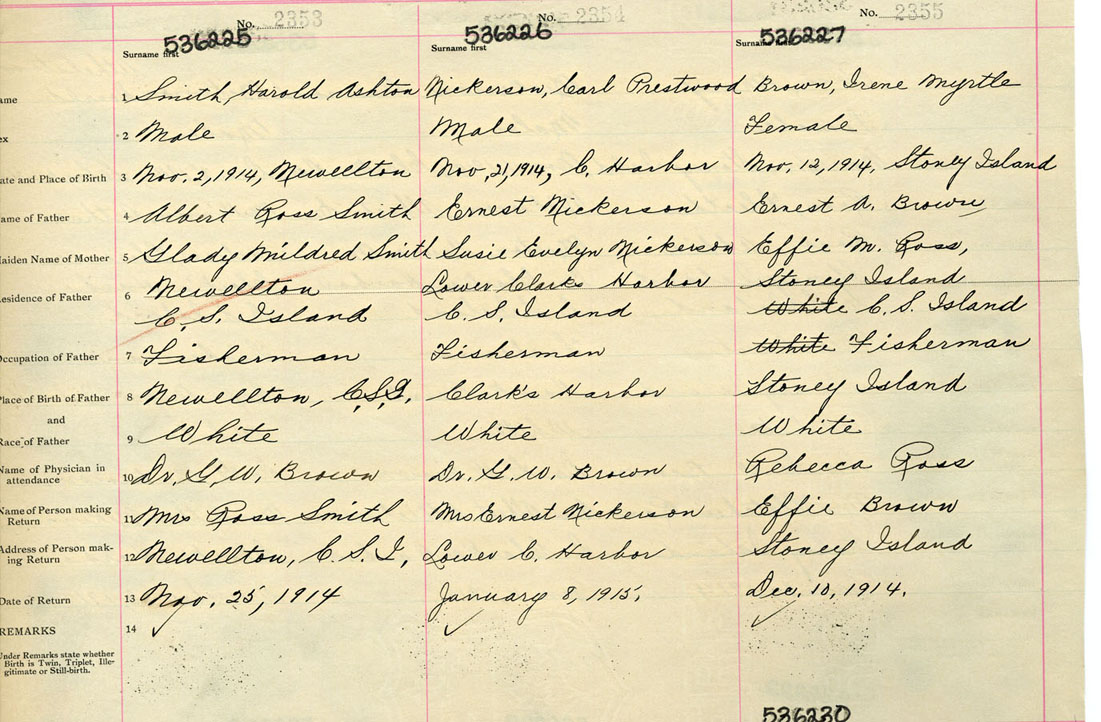 No. 2353 No. 2354 No. 2355
536225 536226 536227
Surname first Surname first Surname first
ame 1 Smith, Harold Ashton Nickerson, Carl Prestwood Brown, Irene Myrtle
ex 2 Male Male Female
ate and Place of Birth 3 Nov. 2, 1914, Newellton Nov. 21, 1914, C. Harbor Nov. 12, 1914, Stoney Island
ame of Father 4 Albert Ross Smith Ernest Nickerson Ernest A. Brown
aiden Name of Mother 5 Glady Mildred Smith Susie Evelyn Nickerson Effie M. Ross,
esidence of Father 6 Newellton Lower Clarks Harbor Stoney Island
C. S. Island C. S. Island White C. S. Island
Occupation of Father 7 Fisherman Fisherman White Fisherman
Place of Birth of Father 8 Newellton, C.S.I. Clark's Harbor Stoney Island
and
Race of Father 9 White White White
Name of Physician in attendance 10 Dr. G. W. Brown Dr. G. W. Brown Rebecca Ross
Name of Person making Return 11 Mrs Ross Smith Mrs Ernest Nickerson Effie Brown
Address of Person mak-ing Return 12 Newellton, C. S. I, Lower C. Harbor Stoney Island
Date of Return 13 Nov. 25, 1914 January 8, 1915. Dec. 10, 1914.
REMARKS 14
Under Remarks state whether
Birth is Twin, Triplet, Ille-
gitimate or Still-birth.
536230